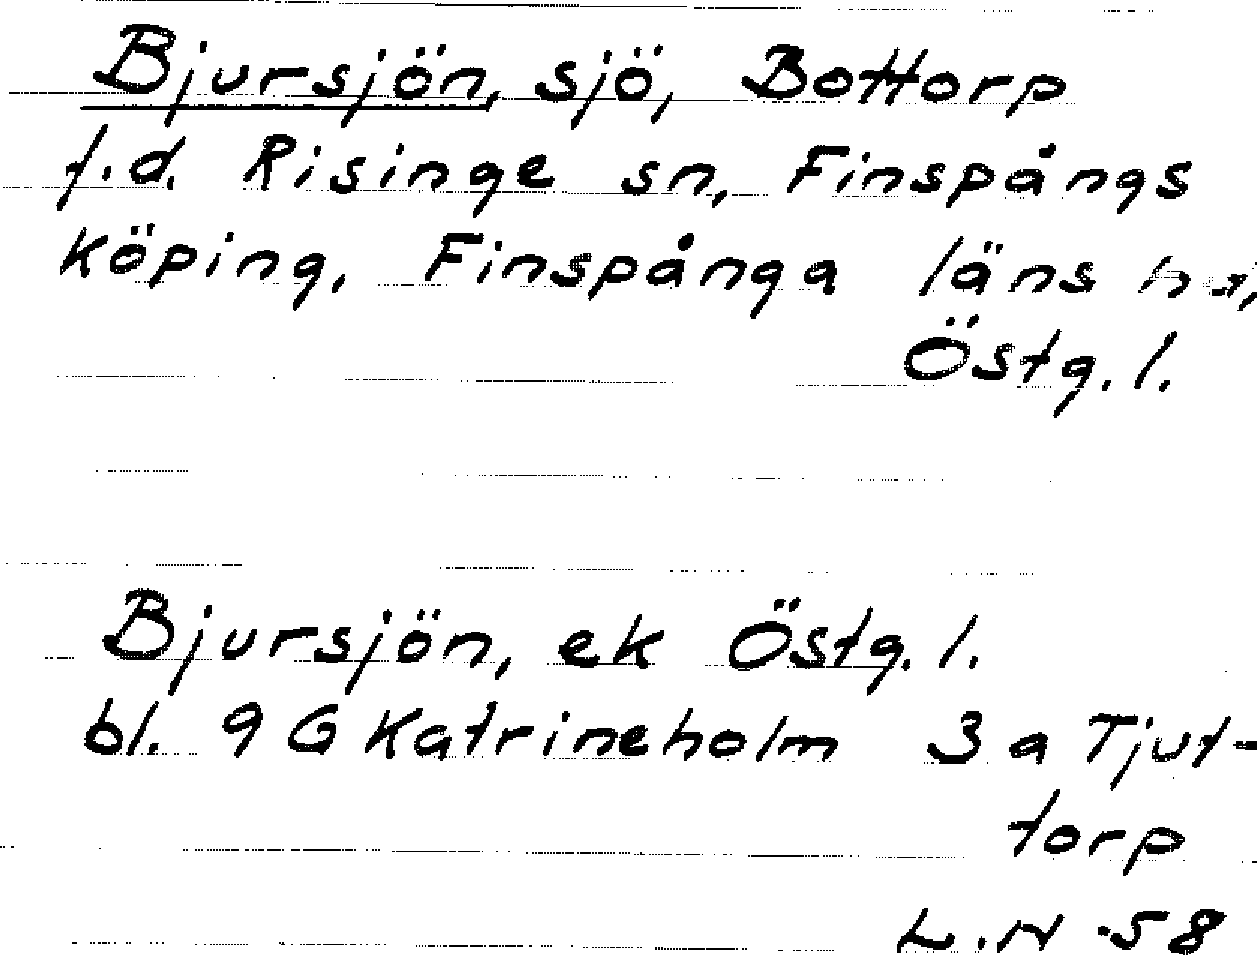 Bjursjön, sjö, Bottorp
f.d. Risinge sn, Finspångs
köping, Finspånga läns hd,
Östg. l.
Bjursjön, ek Östg. l.
bl. 9 G Katrineholm 3 a Tjut-
torp
L.N -58